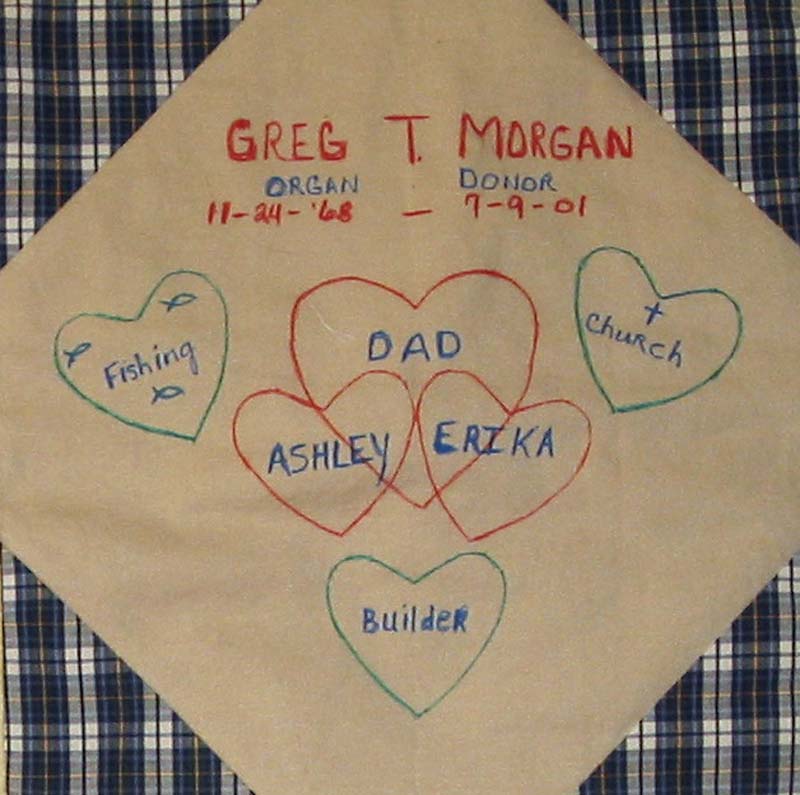 GREG T. MORGAN
ORGAN DONOR
11-24-'68 - 7-9-01
DAD
Fishing
Church
ASHLEY ERIKA
Builder